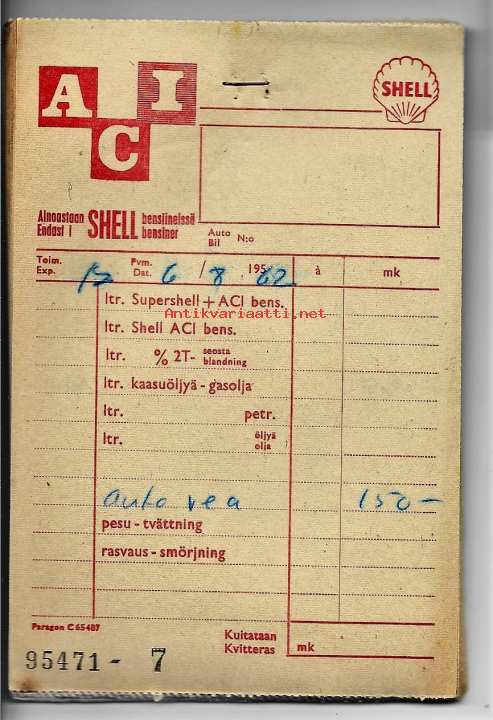 A I
C
SHELL
Ainoastaan SHELL bensiineissä
Endast i bensiner
Auto
Bil N:o
Toim. Pvm.
Exp. Dat. 6/8 195 62 à mk
Antikvariaatti.net
ltr. Supershell + ACI bens.
ltr. Shell ACI bens.
ltr. % 2T- seosta
blandning
ltr. kaasuöljyä - gasolja
ltr. petr.
ltr. öljyä
olja
auto 150-
pesu - tvättning
rasvaus - smörjning
Paragon C 65487
Kuitataan
Kvitteras mk
95471 - 7